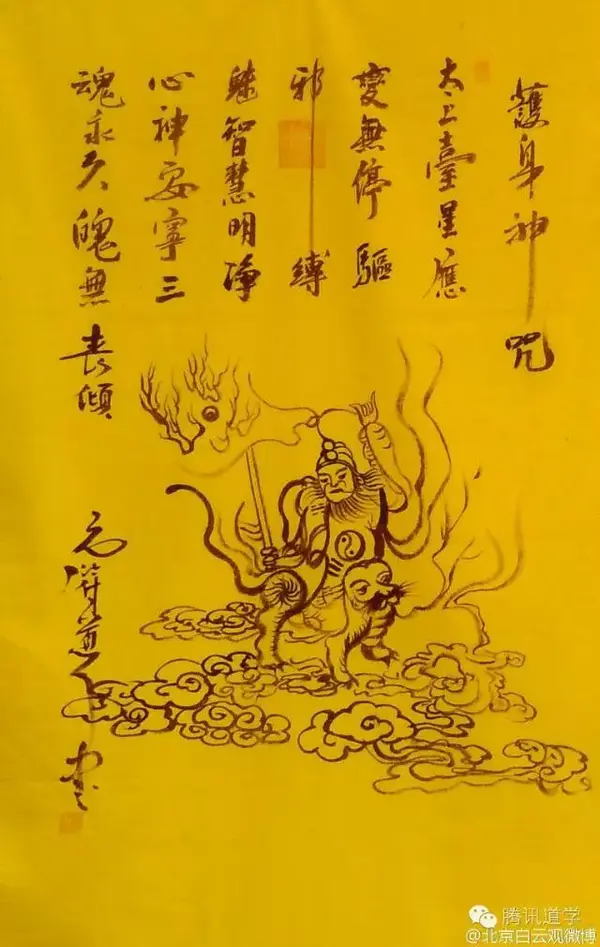 護身神咒
太上臺星應
變無停驅
邪縛
魅智慧明淨
心神安寧三
魂永久魄無喪傾
道人書
腾讯道学
@北京白云观微博